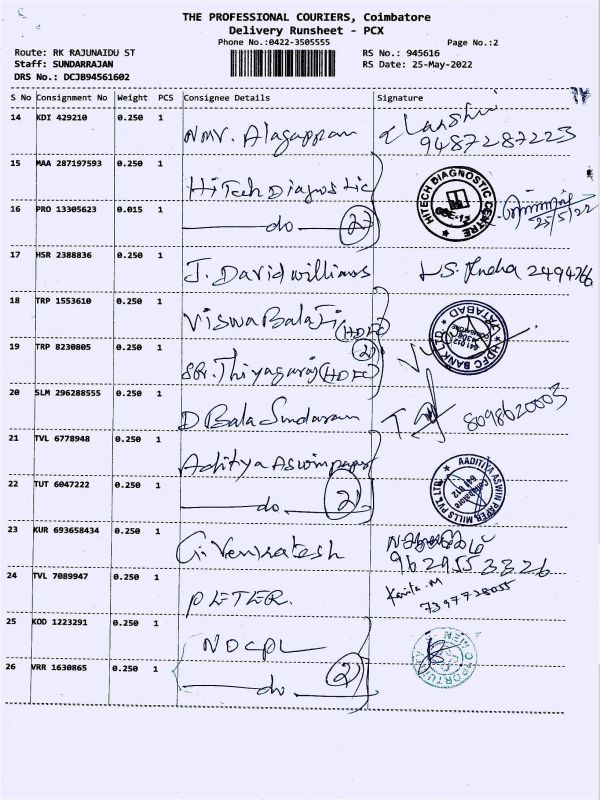 THE PROFESSIONAL COURIERS, Coimbatore
Delivery Runsheet - PCX
Phone No.:0422-3505555 Page No.:2
Route: RK RAJUNAIDU ST RS No.: 945616
Staff: SUNDARRAJAN RS Date: 25-May-2022
DRS No.: DCJB94561602
S No Consignment No Weight PCS Consignee Details Signature
14 KDI 429210 0.250 1 Alagappan 9487287223
15 MAA 287197593 0.250 1 HiTech Diagnostic HITECH DIAGNOSTIC CENTRE
16 PRO 13305623 0.015 1 do 2 25/5/22
17 HSR 2388836 0.250 1 J. David williams 2494766
18 TRP 1553610 0.250 1 Viswa Balaji (HDFC) HDFC BANK LTD
19 TRP 8230805 0.250 1 Thiyagaraj (HDFC) 2
20 SLM 296288555 0.250 1 D Bala Sundaram 8098620003
21 TVL 6778948 0.250 1 Aditya Aswin paper AADITIYA ASWIN PAPER MILLS PVT LTD Coimbatore 641 012
22 TUT 6047222 0.250 1 do 2
23 KUR 693658434 0.250 1 G. Venkatesh 9629553326
24 TVL 7089947 0.250 1 PETER. Kavita.M 7397728055
25 KOD 1223291 0.250 1 NOCPL
26 VRR 1630865 0.250 1 do 2